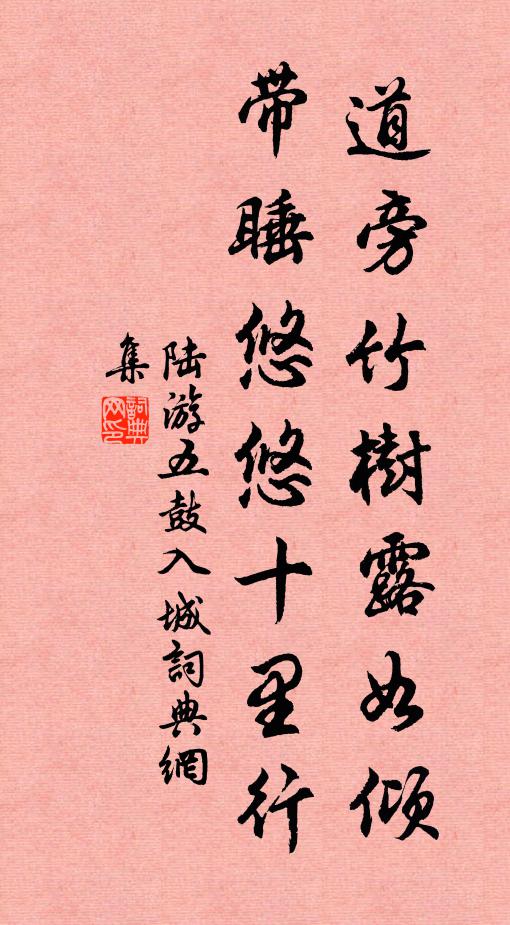 道旁竹樹露如傾
带睡悠悠十里行
陆游五鼓入城詞典網
集
詞典網印